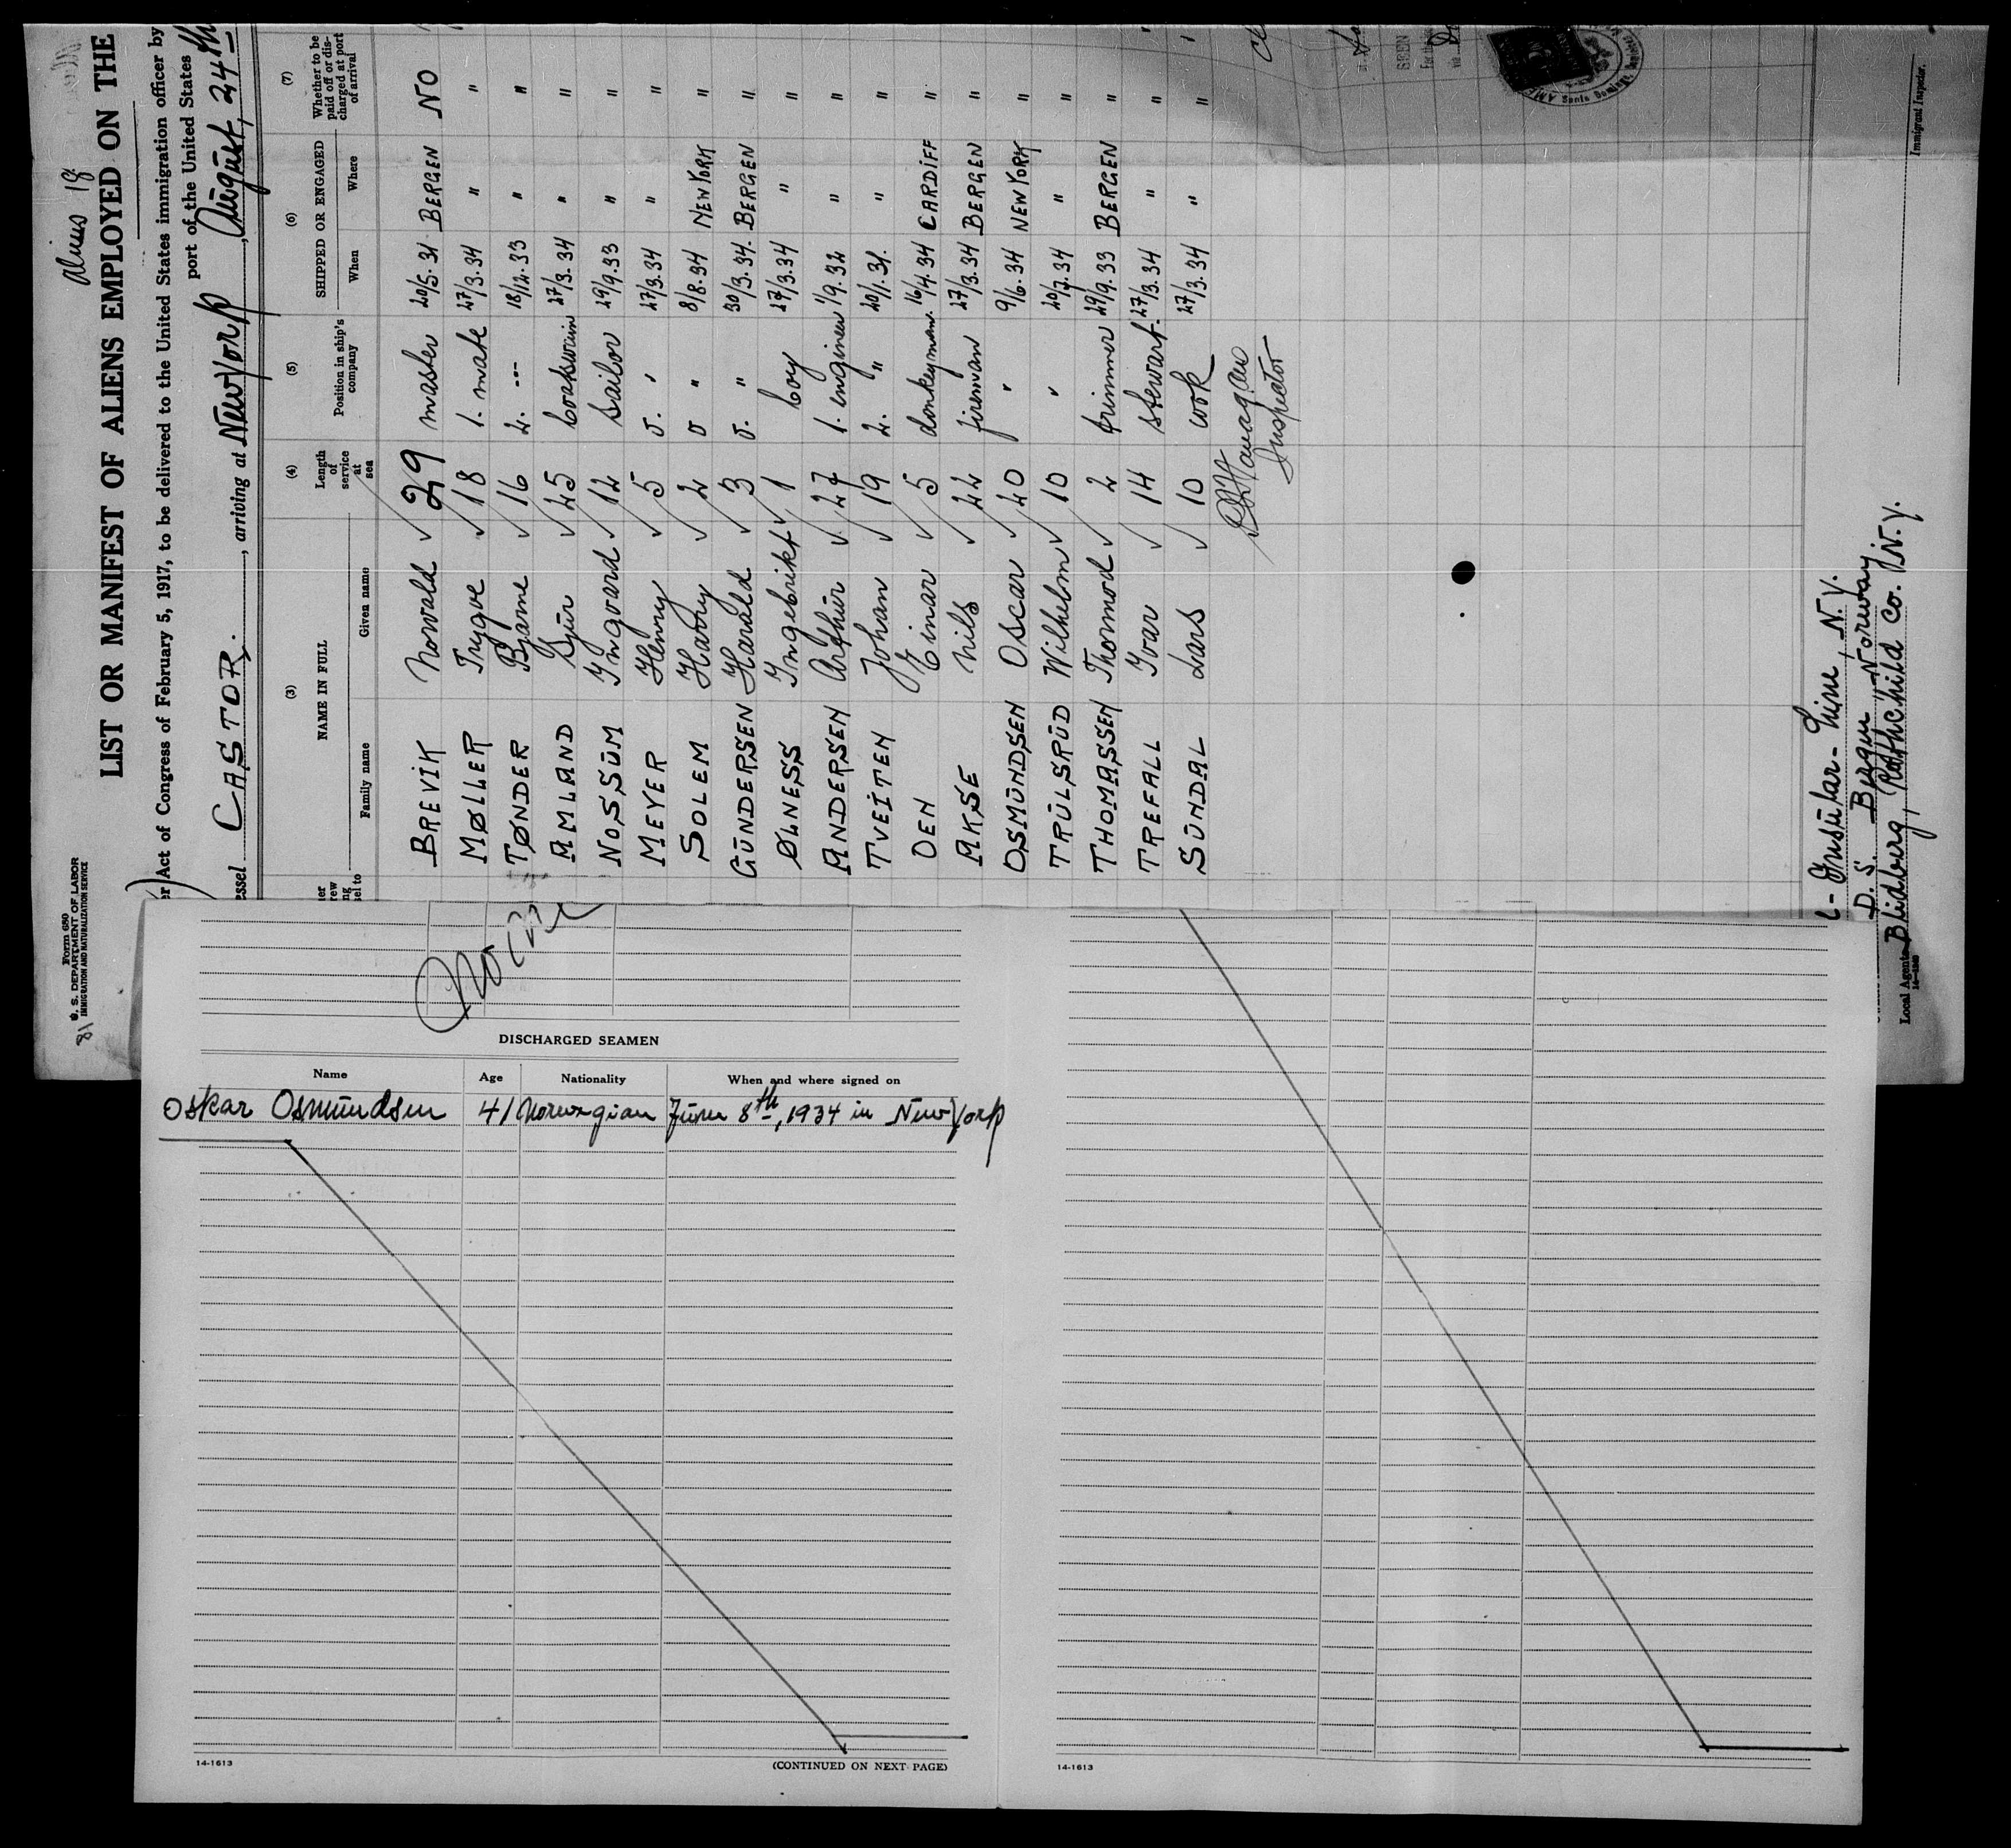 aliens 18
LIST OR MANIFEST OF ALIENS EMPLOYED ON THE
Form 680
U. S. DEPARTMENT OF LABOR
IMMIGRATION AND NATURALIZATION SERVICE
81
er Act of Congress of February 5, 1917, to be delivered to the United States immigration officer by
port of the United States
essel CASTOR., arriving at New York, August, 24th
(3) (4) (5) (6) (7)
NAME IN FULL Length of service at sea Position in ship's company SHIPPED OR ENGAGED Whether to be paid off or discharged at port of arrival
Family name Given name When Where
BREVIK Norvald √ 29 master 20/5. 31 BERGEN NO
MØLLER Trygve √ 18 1. mate 27/3. 34 " "
TØNDER Bjarne √ 16 2. --- 18/12. 33 " "
AMLAND Gjūr √ 45 boatswain 27/3. 34 " "
NOSSŪM Yngvard √ 12 sailor 29/9. 33 " "
MEYER Henry √ 5 o. " 27/3. 34 " "
SOLEM Harry √ 2 o " 8/8. 34 NEW YORK "
GŪNDERSEN Harald √ 3 o. " 30/3. 34. BERGEN "
ØLNESS Yngebrikt √ 1 boy 27/3. 34 " "
ANDERSEN Arthūr √ 27 1. engineer 1/9. 32 " "
TVEITEN Johan √ 19 2. " 20/1. 31. " "
OEN Einar √ 5 donkeyman. 16/4. 34 CARDIFF "
AKSE Nils √ 22 fireman 27/3. 34 BERGEN "
OSMŪNDSEN Oscar √ 20 " 9/6. 34 NEW YORK "
TRŪLSRŪD Wilhelm √ 10 " 20/7. 34 " "
THOMASSEN Thormod √ 2 trimmer 29/9. 33 BERGEN "
TREFALL Yvar √ 14 stewart. 27/3. 34 " "
SŪNDAL Lars √ 10 cook 27/3. 34 " "
Inspector
SEEN
Santo Domingo
Line, N. Y.
D. S. Bergen Norway
Local Agents Blidberg, Rothchild Co. N. Y.
Immigrant Inspector.
DISCHARGED SEAMEN
Name Age Nationality When and where signed on
Oskar Osmūndsen 41 Norwegian Jūne 8th, 1934 in New York
14-1613 (CONTINUED ON NEXT PAGE)
14-1613